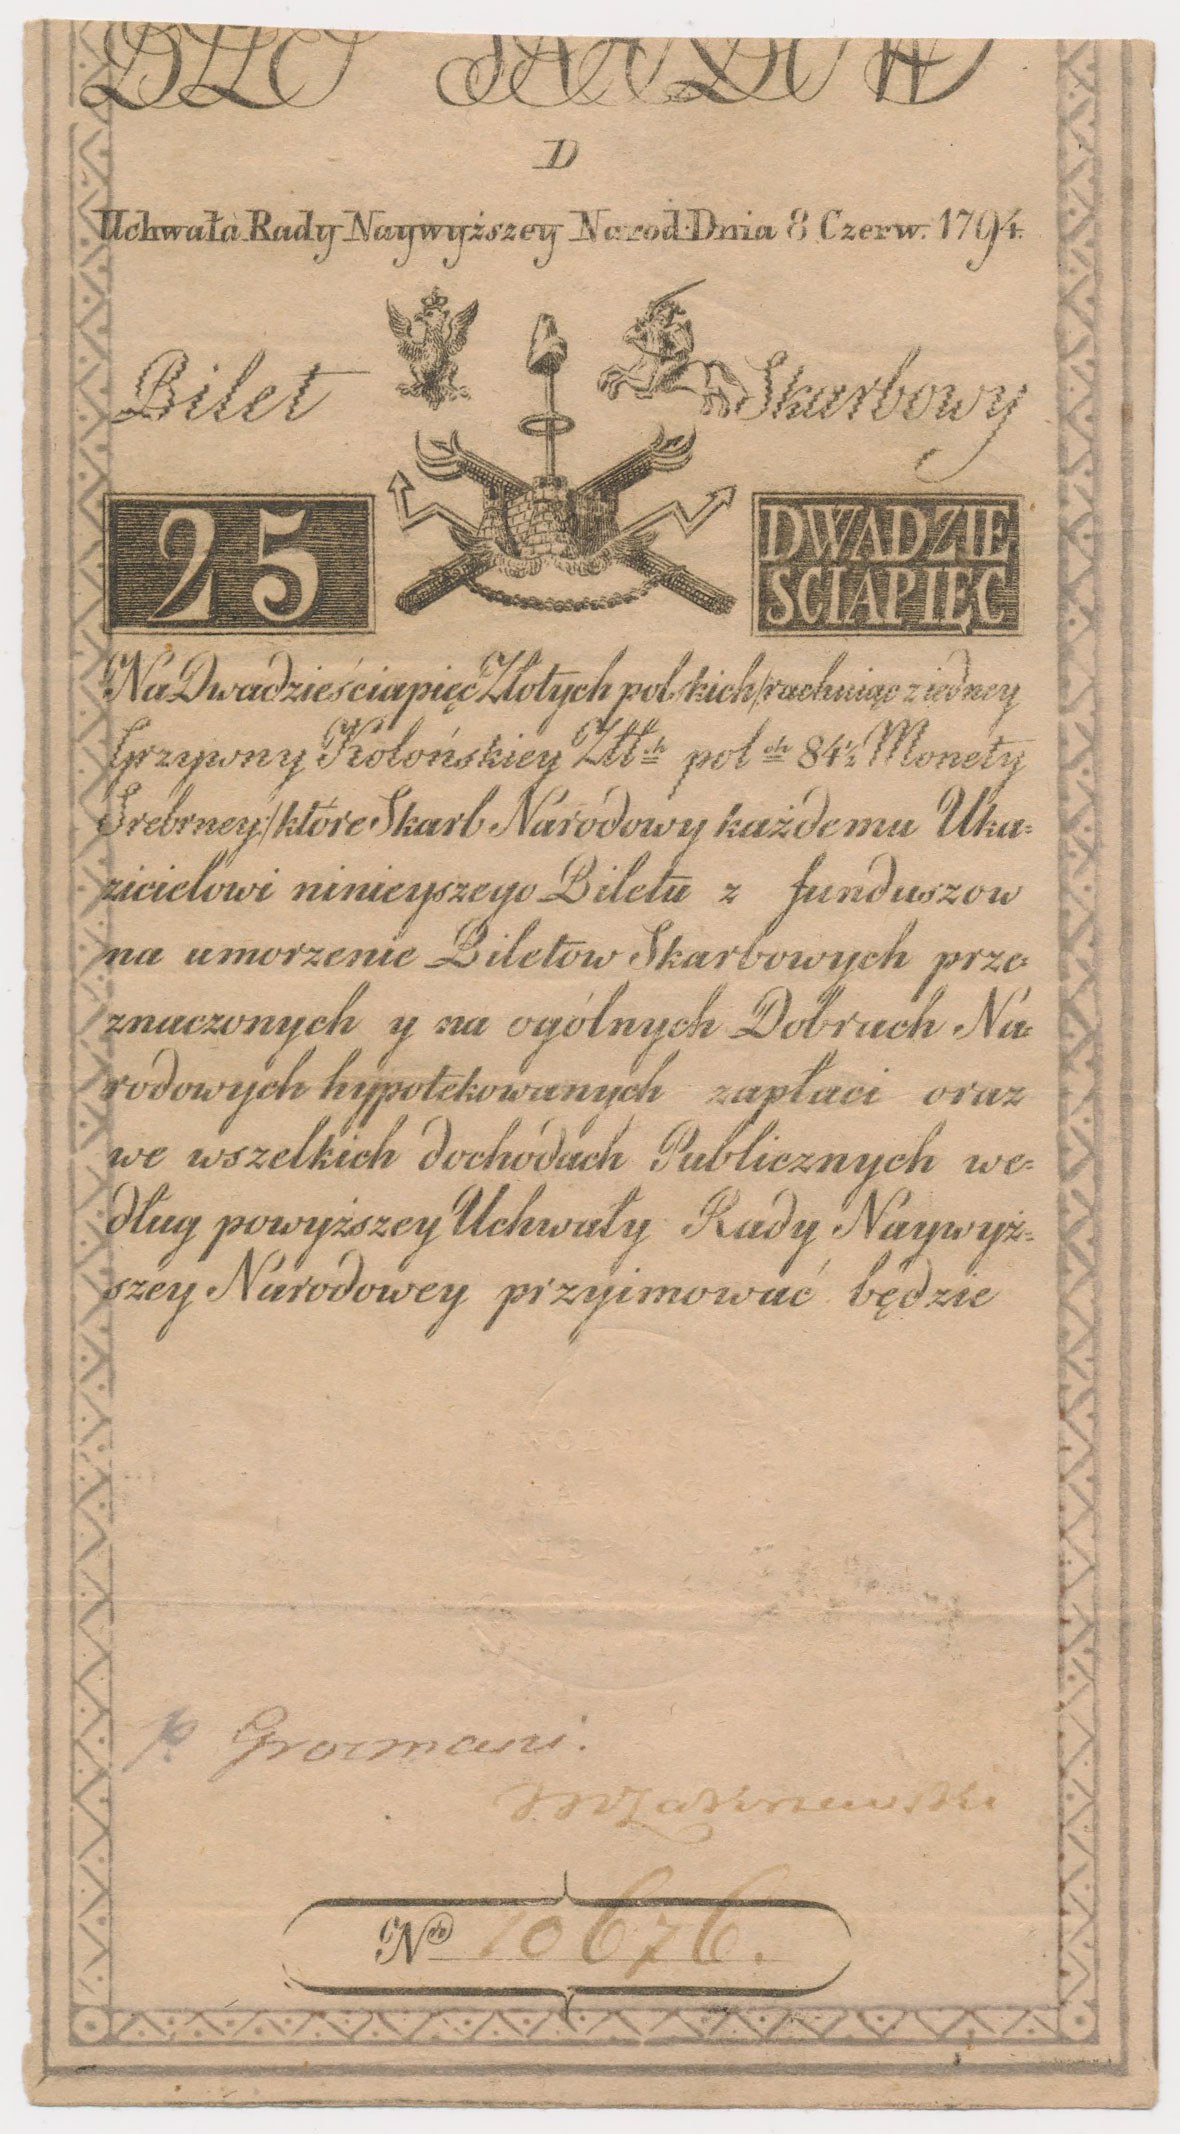 BIL SKARBOW
D
Uchwała Rady Naywyższey Narod: Dnia 8 Czerw. 1794.
Bilet Skarbowy
25
DWADZIE
SCIAPIĘC
Na Dwadzieściapięć Złotych polskich /:rachuiąc z iedney
Grzywny Kolońskiey Złł ch pol ch 84½ Monety
Srebrney:/ które Skarb Narodowy każdemu Uka=
zicielowi ninieyszego Biletu z funduszow
na umorzenie Biletow Skarbowych prze=
znaczonych y na ogólnych Dobrach Na=
rodowych hypotekowanych zapłaci oraz
we wszelkich dochodach Publicznych we=
dług powyższey Uchwały Rady Naywyż=
szey Narodowey przyimować będzie
p. Grozmani.
No 10676.